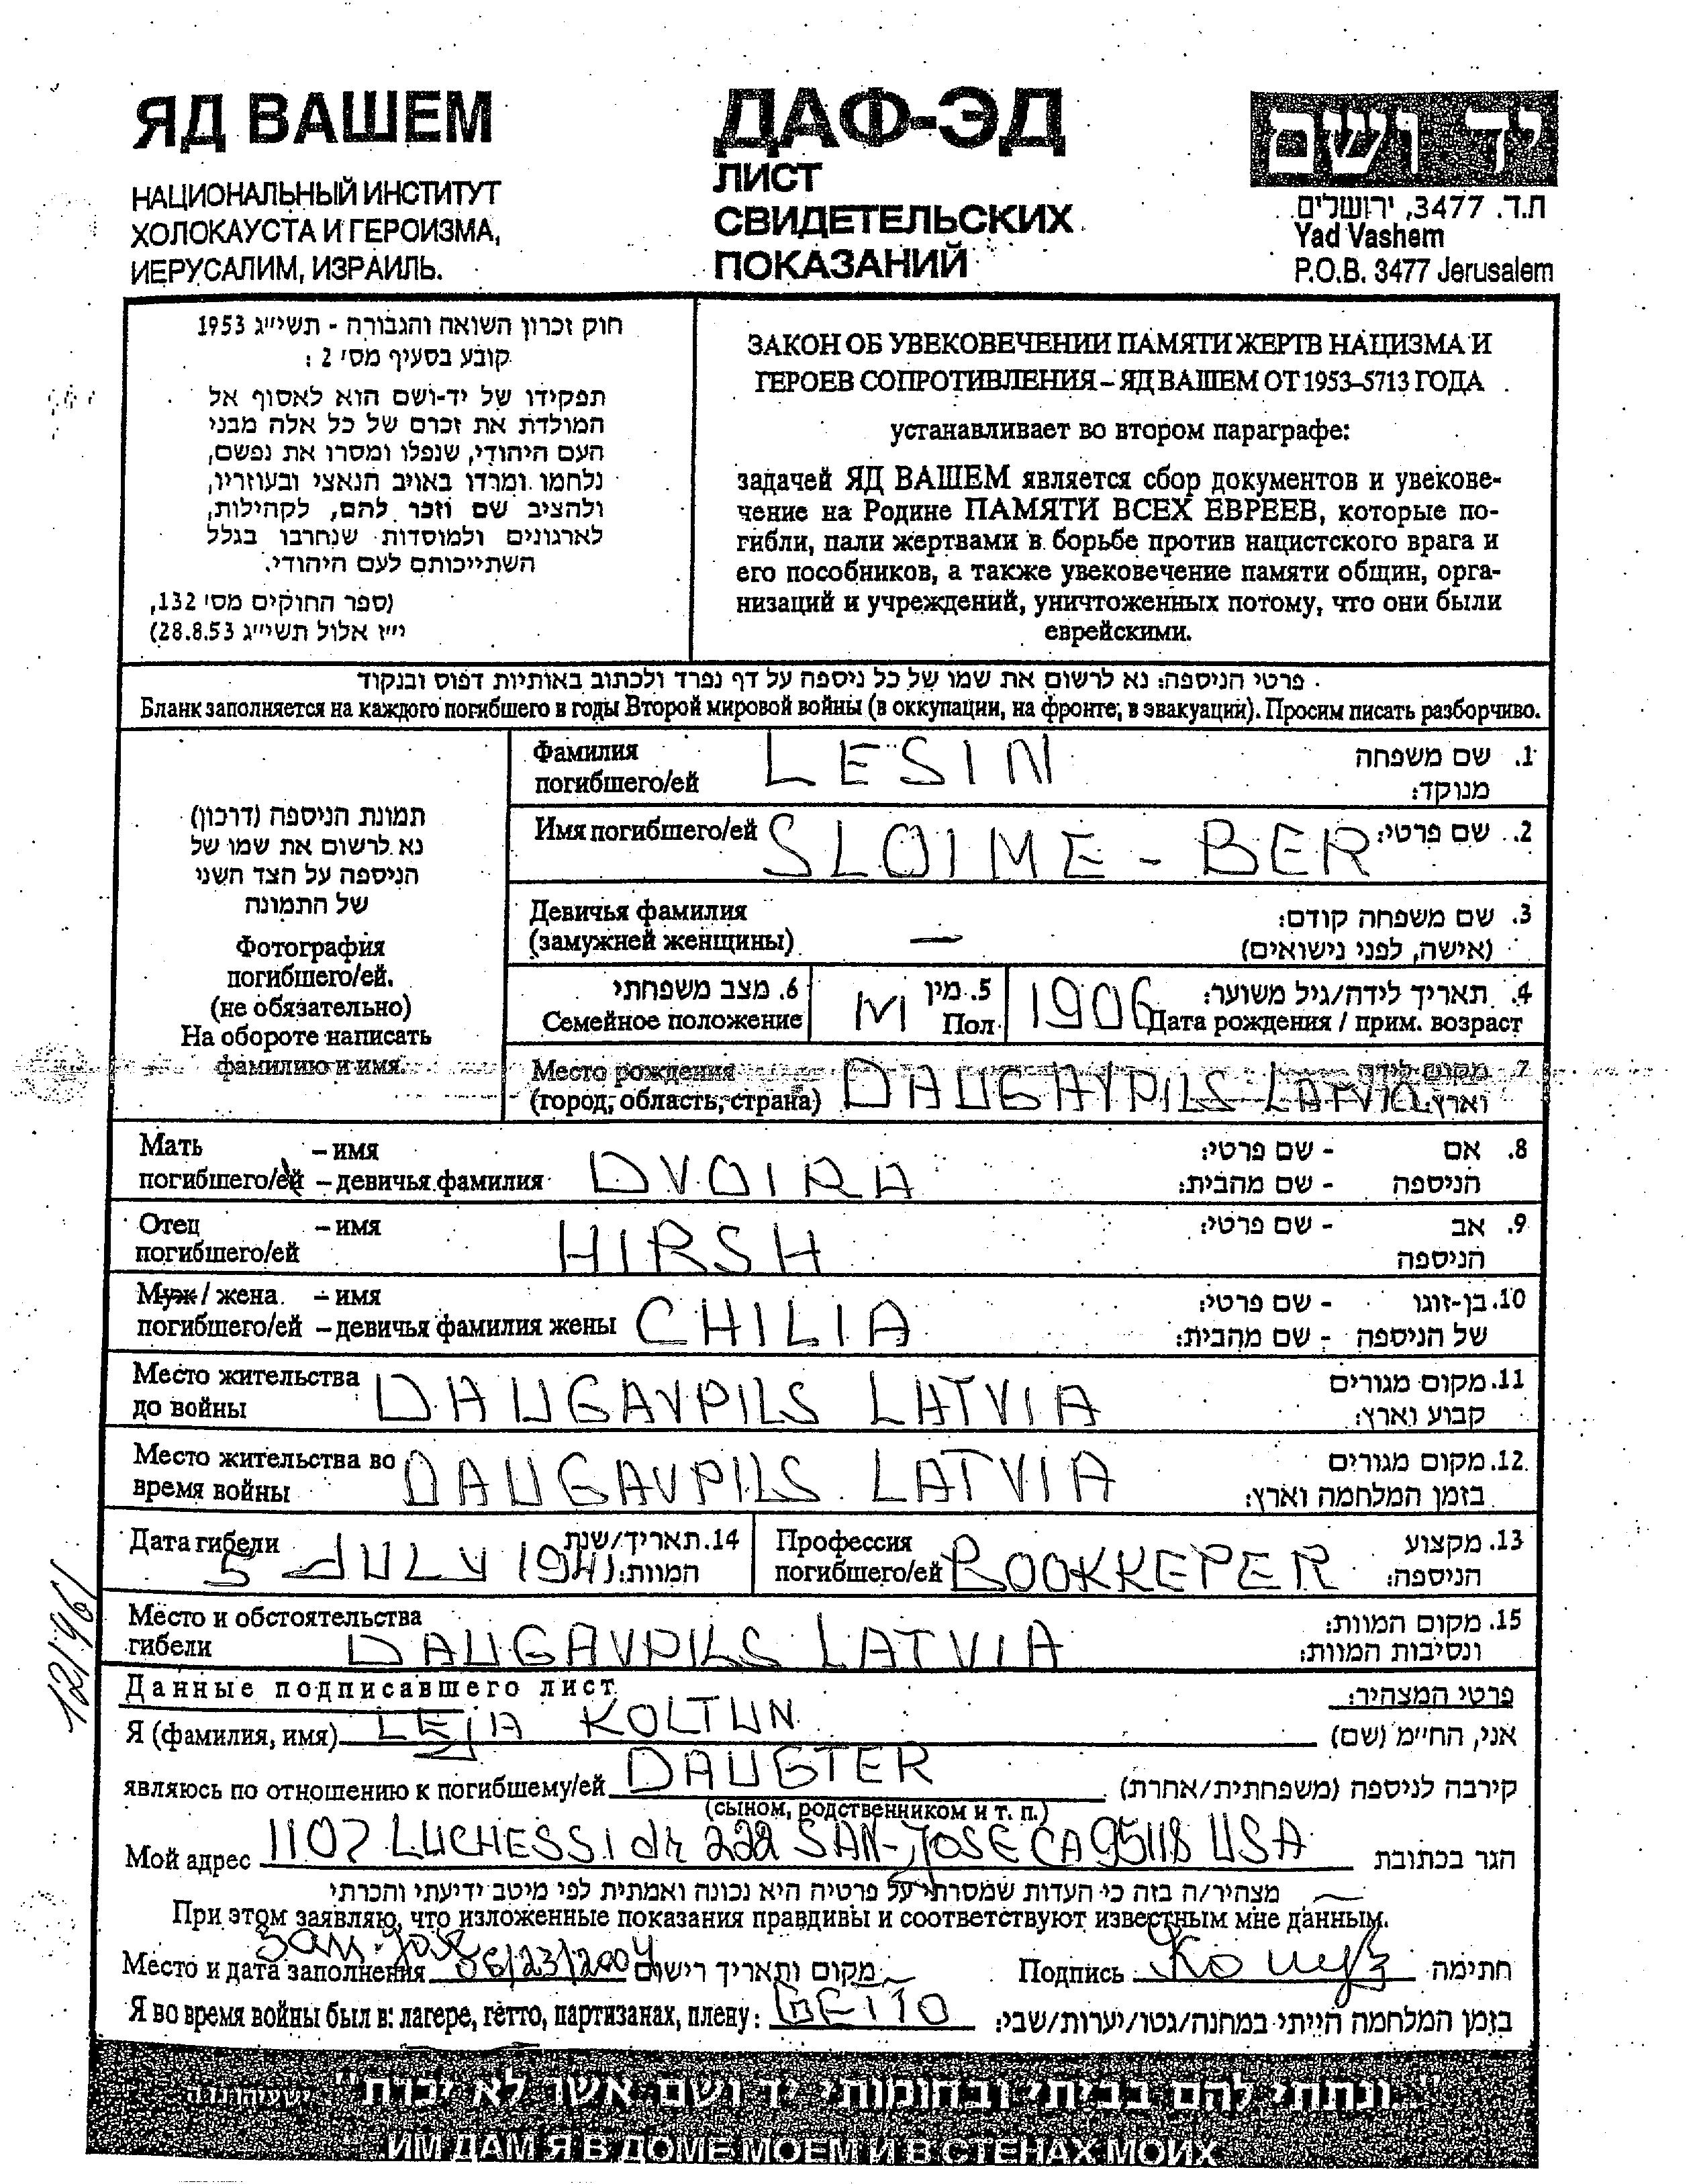 ЯД ВАШЕМ
НАЦИОНАЛЬНЫЙ ИНСТИТУТ
ХОЛОКАУСТА И ГЕРОИЗМА,
ИЕРУСАЛИМ, ИЗРАИЛЬ.
ДАФ-ЭД
ЛИСТ
СВИДЕТЕЛЬСКИХ
ПОКАЗАНИЙ
יד ושם
ת.ד. 3477, ירושלים
Yad Vashem
P.O.B. 3477 Jerusalem
חוק זכרון השואה והגבורה - תשי״ג 1953
קובע בסעיף מס׳ 2 :
תפקידו של יד-ושם הוא לאסוף אל
המולדת את זכרם של כל אלה מבני
העם היהודי, שנפלו ומסרו את נפשם,
נלחמו ומרדו באויב הנאצי ובעוזריו,
ולהציב שם וזכר להם, לקהילות,
לארגונים ולמוסדות שנחרבו בגלל
השתייכותם לעם היהודי.
(ספר החוקים מס׳ 132,
י״ז אלול תשי״ג 28.8.53)
ЗАКОН ОБ УВЕКОВЕЧЕНИИ ПАМЯТИ ЖЕРТВ НАЦИЗМА И
ГЕРОЕВ СОПРОТИВЛЕНИЯ – ЯД ВАШЕМ ОТ 1953–5713 ГОДА
устанавливает во втором параграфе:
задачей ЯД ВАШЕМ является сбор документов и увекове-
чение на Родине ПАМЯТИ ВСЕХ ЕВРЕЕВ, которые по-
гибли, пали жертвами в борьбе против нацистского врага и
его пособников, а также увековечение памяти общин, орга-
низаций и учреждений, уничтоженных потому, что они были
еврейскими.
פרטי הניספה: נא לרשום את שמו של כל ניספה על דף נפרד ולכתוב באותיות דפוס ובנקוד
Бланк заполняется на каждого погибшего в годы Второй мировой войны (в оккупации, на фронте, в эвакуации). Просим писать разборчиво.
תמונת הניספה (דרכון)
נא לרשום את שמו של
הניספה על הצד השני
של התמונה
Фотография
погибшего/ей.
(не обязательно)
На обороте написать
фамилию и имя.
Фамилия LESIN 1. שם משפחה
погибшего/ей מנוקד:
Имя погибшего/ей SLOIME - BER 2. שם פרטי:
Девичья фамилия — 3. שם משפחה קודם:
(замужней женщины) (אישה, לפני נישואים)
6. מצב משפחתי M 5. מין 1906 4. תאריך לידה/גיל משוער:
Семейное положение Пол Дата рождения / прим. возраст
Место рождения DAUGAVPILS LATVIA 7. מקום לידה
(город, область, страна) וארץ:
Мать – имя DVOIRA 8. אם - שם פרטי:
погибшего/ей – девичья фамилия הניספה - שם מהבית:
Отец – имя HIRSH 9. אב - שם פרטי:
погибшего/ей הניספה
Муж / жена – имя CHILIA 10. בן-זוגו - שם פרטי:
погибшего/ей – девичья фамилия жены של הניספה - שם מהבית:
Место жительства DAUGAVPILS LATVIA 11. מקום מגורים
до войны קבוע וארץ:
Место жительства во DAUGAVPILS LATVIA 12. מקום מגורים
время войны בזמן המלחמה וארץ:
Дата гибели 5 JULY 1941 14. תאריך/שנת המוות:
Профессия BOOKKEPER 13. מקצוע
погибшего/ей הניספה:
Место и обстоятельства DAUGAVPILS LATVIA 15. מקום המוות:
гибели ונסיבות המוות:
12/1961
Данные подписавшего лист פרטי המצהיר:
Я (фамилия, имя) LEJA KOLTUN אני, החי״מ (שם)
являюсь по отношению к погибшему/ей DAUGTER קירבה לניספה (משפחתית/אחרת)
(сыном, родственником и т. п.)
Мой адрес 1107 LUCHESSI dr 222 SAN-JOSE CA 95118 USA הגר בכתובת
מצהיר/ה בזה כי העדות שמסרתי על פרטיה היא נכונה ואמתית לפי מיטב ידיעתי והכרתי
При этом заявляю, что изложенные показания правдивы и соответствуют известным мне данным.
Место и дата заполнения San-Jose 06/23/2004 מקום ותאריך רישום Подпись חתימה
Я во время войны был в: лагере, гетто, партизанах, плену: GETTO בזמן המלחמה הייתי במחנה/גטו/יערות/שבי:
"...ונתתי להם בביתי ובחומותי יד ושם אשר לא יכרת" ישעיהו נו ה
ИМ ДАМ Я В ДОМЕ МОЕМ И В СТЕНАХ МОИХ